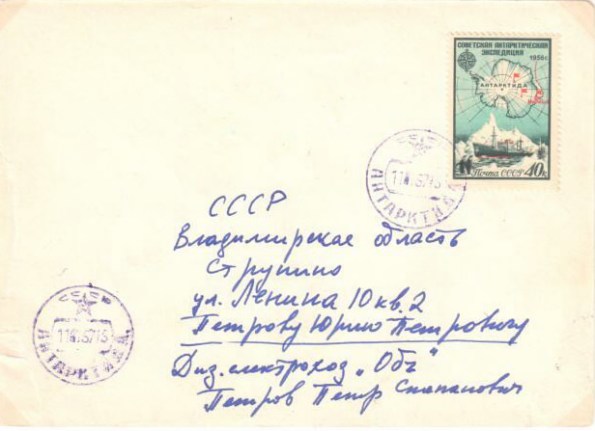 СОВЕТСКАЯ АНТАРКТИЧЕСКАЯ
ЭКСПЕДИЦИЯ
1956г.
АНТАРКТИДА
Почта СССР 40к
СССР
АНТАРКТИДА
СССР
Владимирская область
Струнино
ул. Ленина 10 кв. 2
Петрову Юрию Петровичу
Диз. електроход „Обь"
Петров Петр Степанович
СССР
АНТАРКТИДА